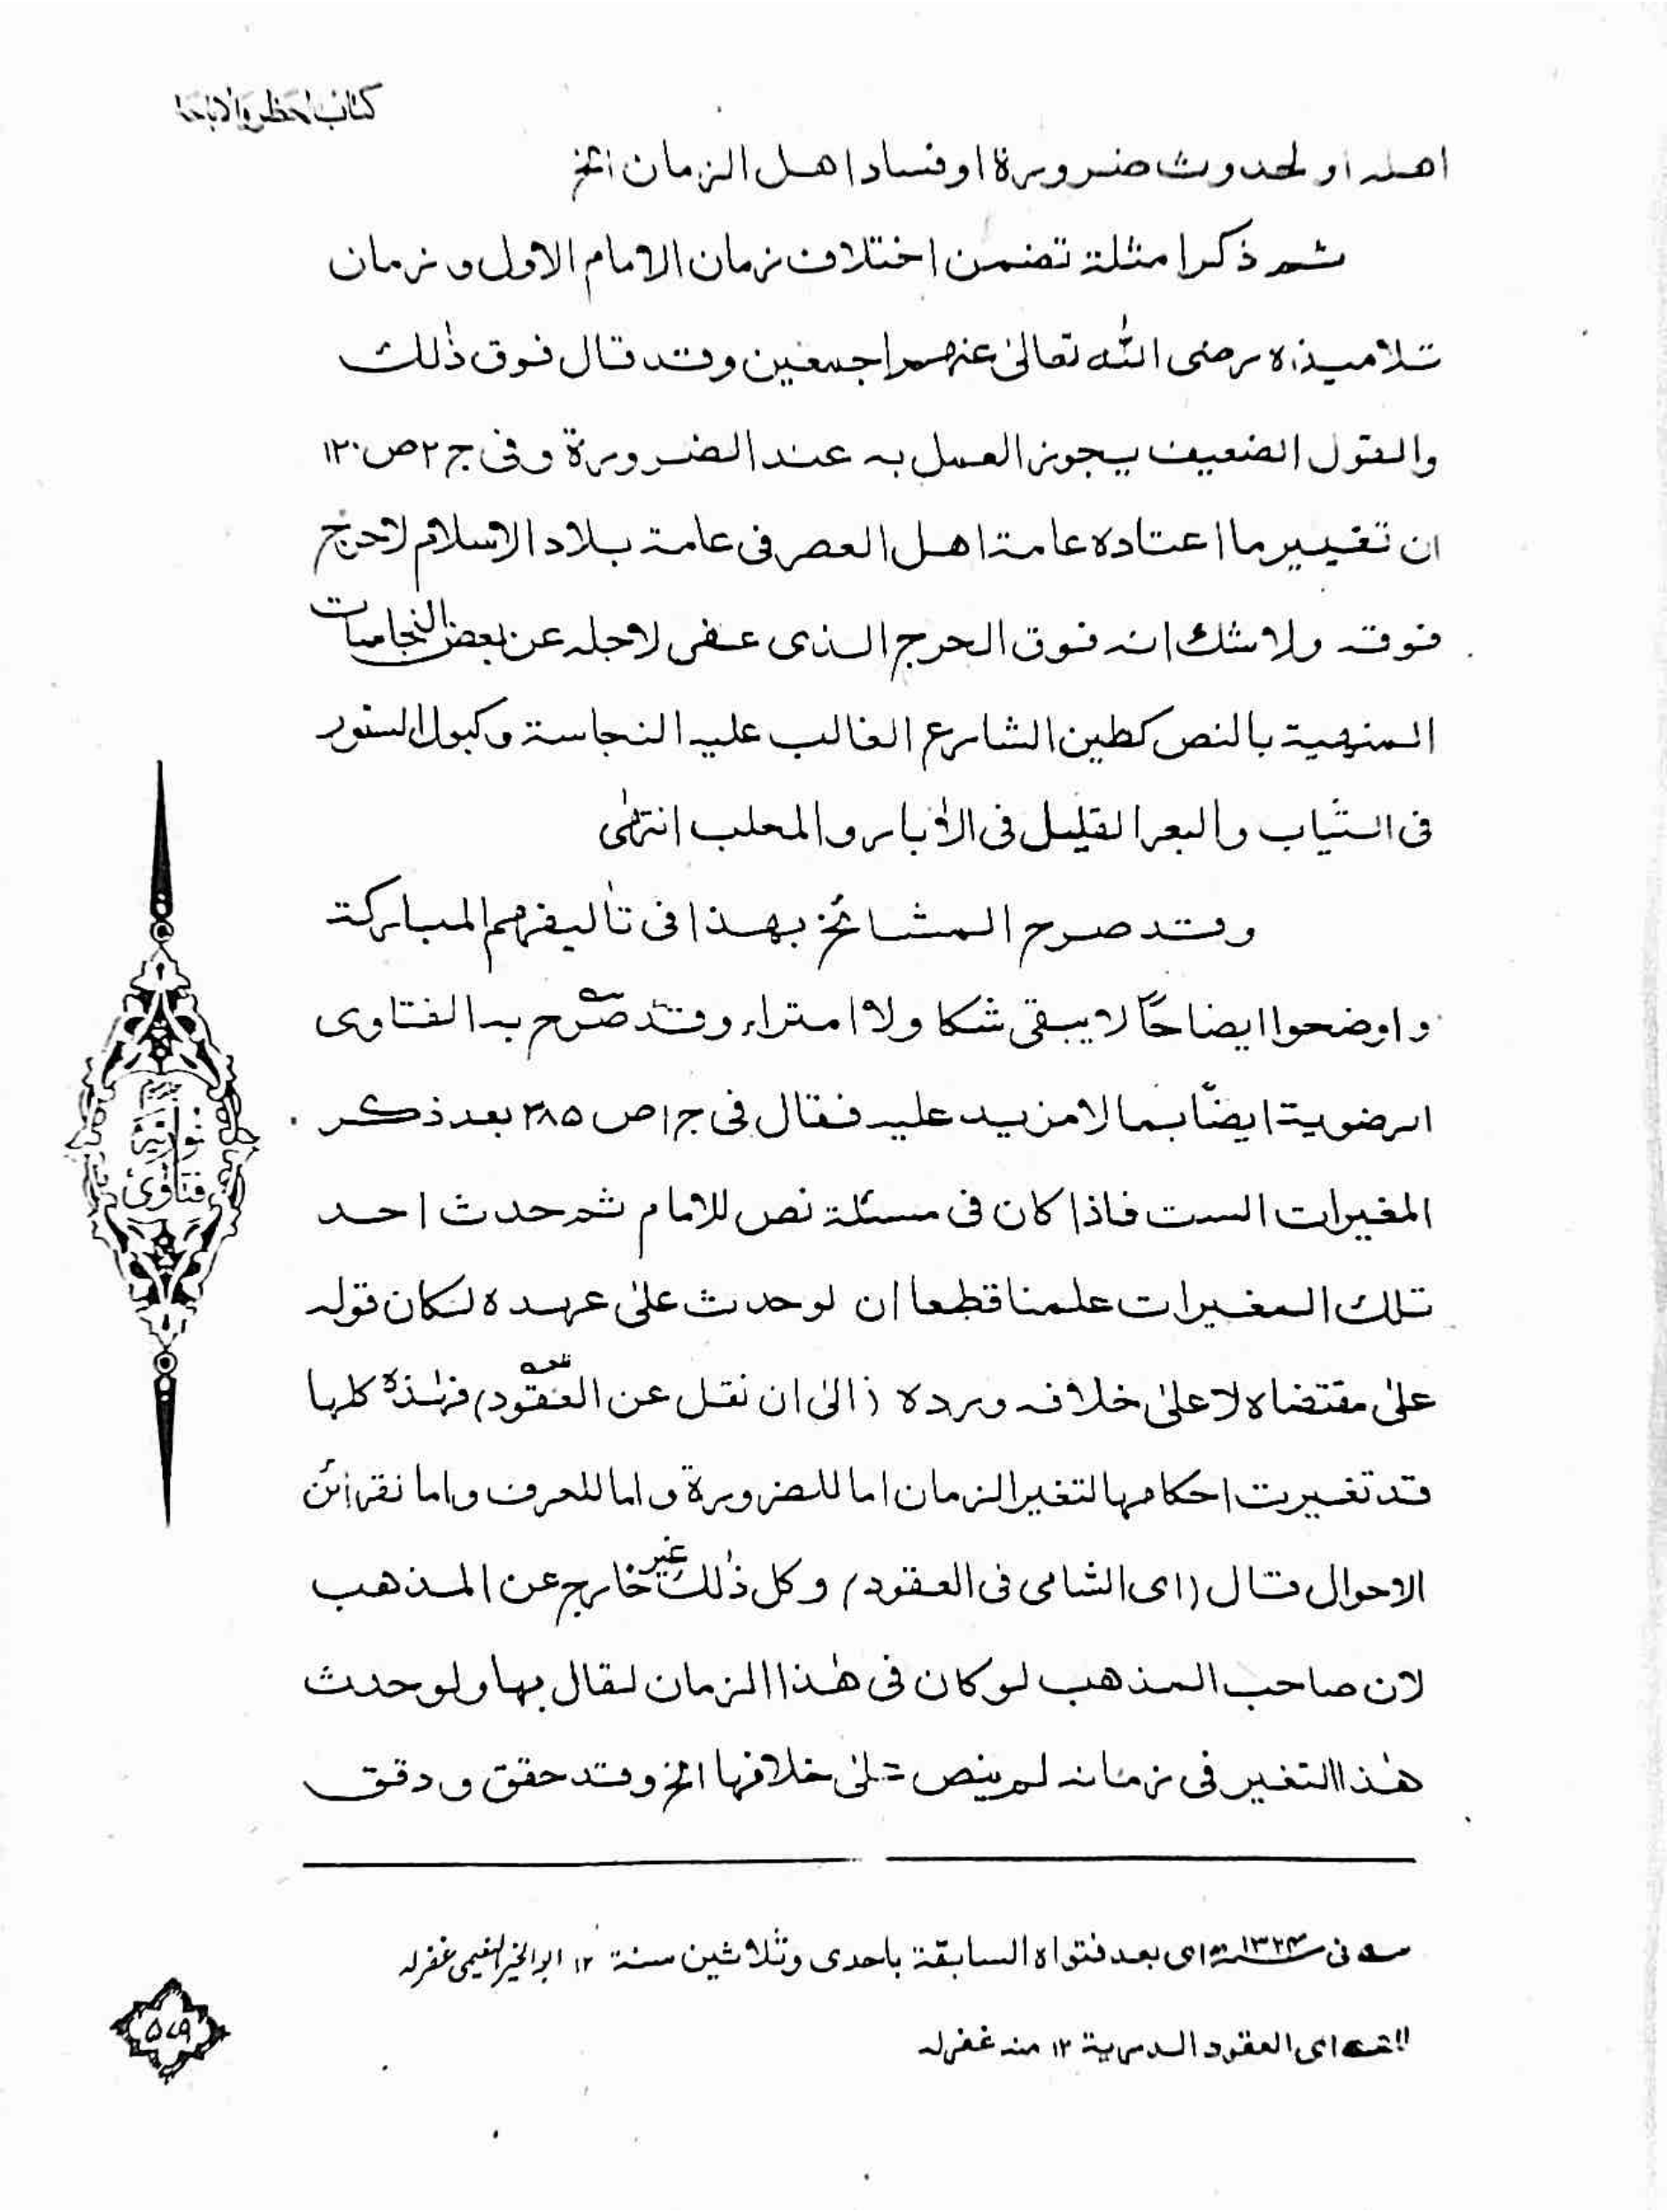 کتاب الحظر والاباحۃ
اھلہ او لحدوث ضرورۃ او فساد اھل الزمان الخ
ثم ذکر امثلۃ تضمن اختلاف زمان الامام الاول و زمان
تلامیذہ رضی اللہ تعالیٰ عنھم اجمعین وقد قال فوق ذٰلک
والقول الضعیف یجوز العمل بہ عند الضرورۃ وفی ج ۲ ص ۱۲۰
ان تغییر ما اعتادہ عامۃ اھل العصر فی عامۃ بلاد الاسلام لاحرج
فوقہ ولا شک انہ فوق الحرج الذی عفی لاجلہ عن بعض النجاسات
المنھیۃ بالنص کطین الشارع الغالب علیہ النجاسۃ وکبول السنور
فی الثیاب والبعر القلیل فی الاٰبار والمحلب انتھٰی
وقد صرح المشائخ بھذا فی تاٰلیفھم المبارکۃ
واوضحوا ایضاحاً لا یبقی شکا ولا امتراء وقد صرح بہ الفتاوی
الرضویۃ ایضاً بما لا مزید علیہ فقال فی ج ۱ ص ۳۸۵ بعد ذکر
المغیرات الست فاذا کان فی مسئلۃ نص للامام ثم حدث احد
تلک المغیرات علمنا قطعا ان لو حدث علیٰ عھدہ لکان قولہ
علیٰ مقتضاہ لا علیٰ خلافہ وردہ (الیٰ ان نقل عن العقود) فھٰذہ کلھا
قد تغیرت احکامھا لتغیر الزمان اما للضرورۃ واما للعرف واما لقرائن
الاحوال قال (ای الشامی فی العقود) وکل ذٰلک غیر خارج عن المذھب
لان صاحب المذھب لو کان فی ھٰذا الزمان لقال بھا ولو حدث
ھٰذا التغیر فی زمانہ لم ینص علیٰ خلافھا الخ وقد حقق و دقق
نوریہ
فتاوی
فی ۱۳۳۴ھ ای بعد فتواہ السابقۃ باحدی وثلاثین سنۃ ۱۲ ابوالخیر النعیمی غفرلہ
ای العقود الدریۃ ۱۲ منہ غفرلہ
۵۷۹